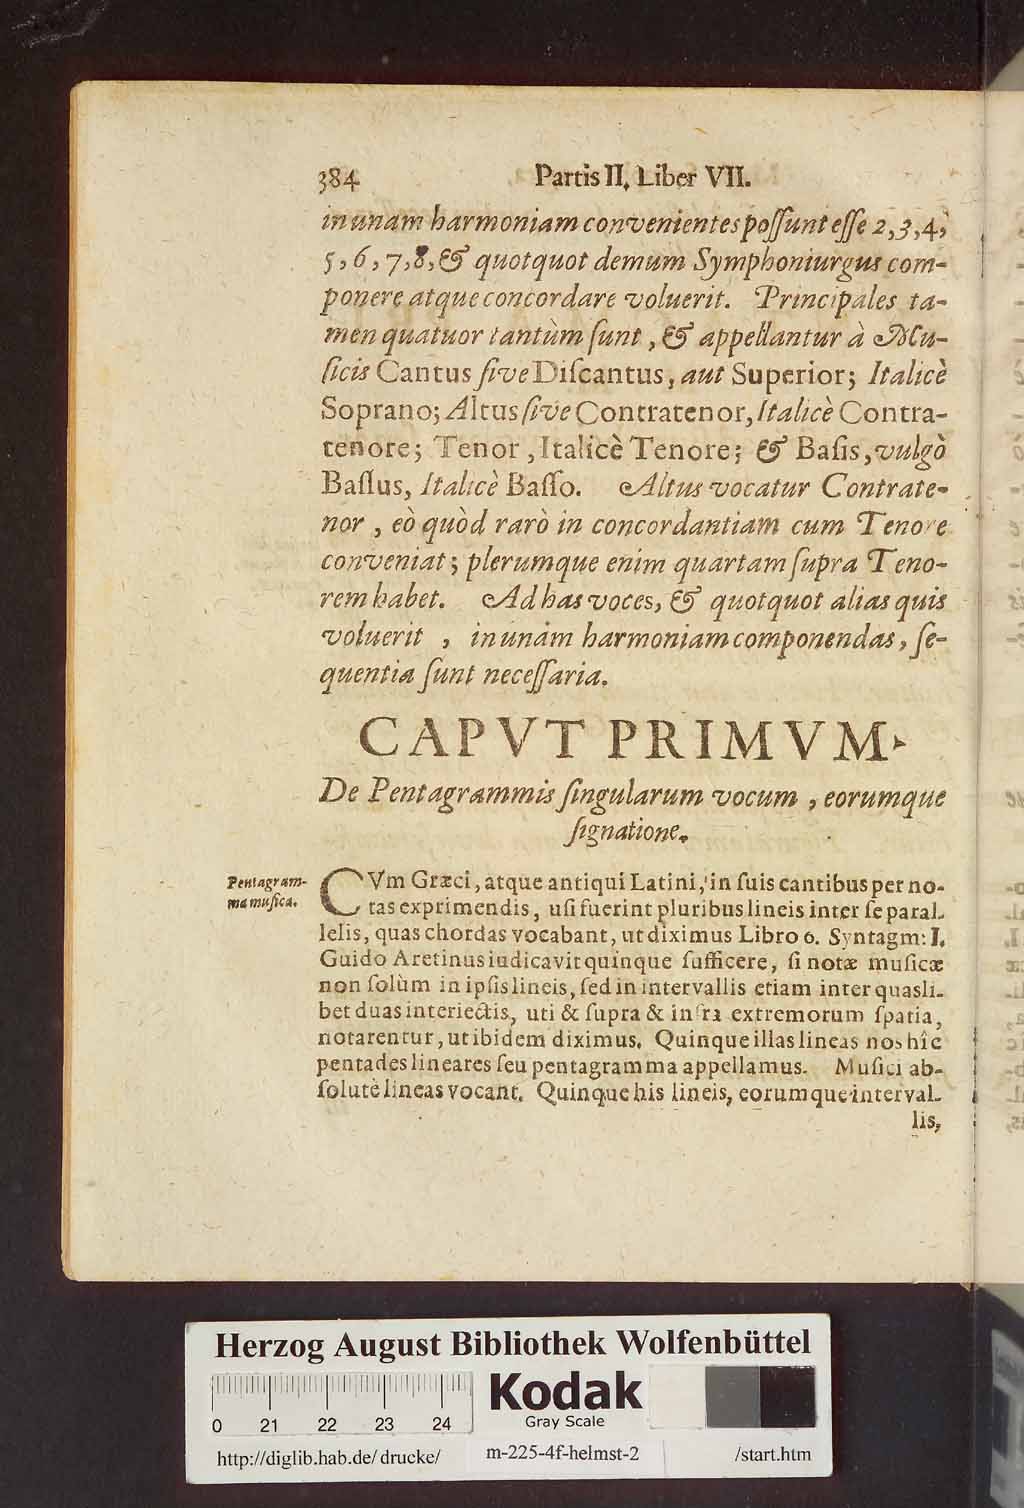 384 Partis II. Liber VII.
in unam harmoniam convenientes poſſunt eſſe 2,3,4,
5,6,7,8,& quotquot demum Symphoniurgus com-
ponere atque concordare voluerit. Principales ta-
men quatuor tantùm ſunt, & appellantur à Mu-
ſicis Cantus ſive Diſcantus, aut Superior; Italicè
Soprano; Altus ſive Contratenor, Italicè Contra-
tenore; Tenor, Italicè Tenore; & Baſis, vulgò
Baſſus, Italicè Baſſo. Altus vocatur Contrate-
nor, eò quòd rarò in concordantiam cum Tenore
conveniat; plerumque enim quartam ſupra Teno-
rem habet. Ad has voces, & quotquot alias quis
voluerit, in unam harmoniam componendas, ſe-
quentia ſunt neceſſaria.
CAPVT PRIMVM.
De Pentagrammis ſingularum vocum, eorumque
ſignatione.
Pentagram-
ma muſica.
CVm Græci, atque antiqui Latini, in ſuis cantibus per no-
tas exprimendis, uſi fuerint pluribus lineis inter ſe paral-
lelis, quas chordas vocabant, ut diximus Libro 6. Syntagm: I.
Guido Aretinus iudicavit quinque ſufficere, ſi notæ muſicæ
non ſolùm in ipſis lineis, ſed in intervallis etiam inter quasli-
bet duas interiectis, uti & ſupra & infra extremorum ſpatia,
notarentur, ut ibidem diximus. Quinque illas lineas nos hîc
pentades lineares ſeu pentagramma appellamus. Muſici ab-
ſolutè lineas vocant. Quinque his lineis, eorumque interval-
lis,
Herzog August Bibliothek Wolfenbüttel
Kodak
Gray Scale
0 21 22 23 24
http://diglib.hab.de/drucke/ m-225-4f-helmst-2 /start.htm